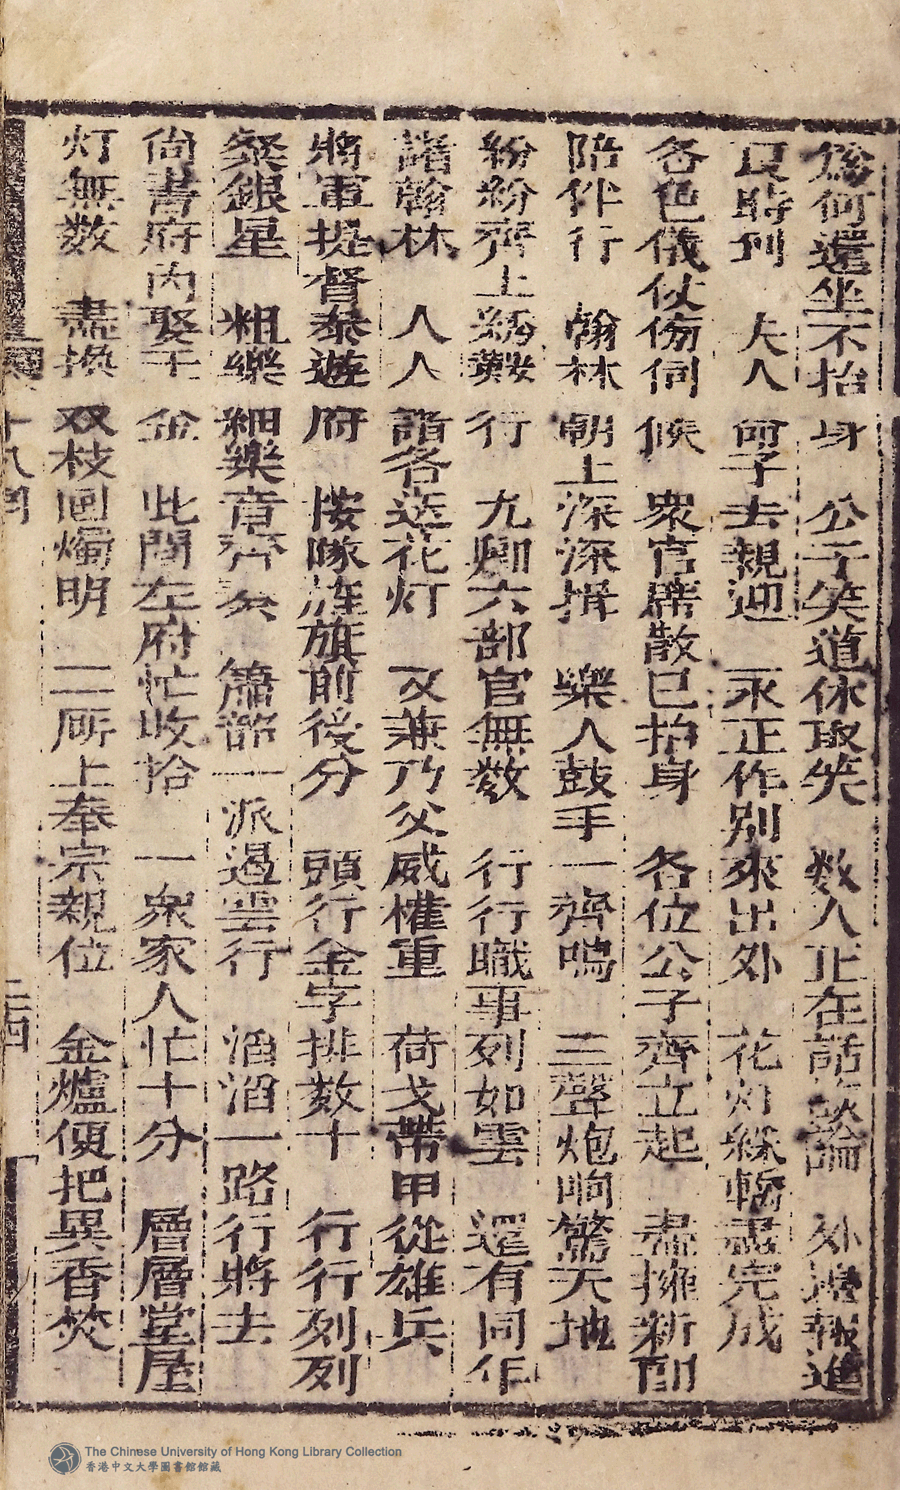 為何還坐不抬身　公子笑道休取笑　数人正在話談論　外邊報進
良時到　夫人命子去親迎　永正作別來出外　花灯綵轎盡完成
各色儀仗俻伺候　衆官席散已抬身　各位公子齊立起　盡擁新郎
陪伴行　翰林朝上深深揖　樂人鼓手一齊鳴　三聲炮响驚天地
紛紛齊上綉鞍行　九卿六部官無数　行行職事列如雲　還有同年
諸翰林　人人諳各送花灯　又兼乃父威權重　荷戈帶甲從雄兵
將軍提督泰遊府　按隊旌旗前後分　頭行金字排数十　行行列列
粲銀星　粗樂細樂音齊奏　簫韶一派遏雲行　滔滔一路行將去
尙書府內娶千金　此間左府忙收拾　一衆家人忙十分　層層堂屋
灯無数　盡換双枝画燭明　二厛上奉宗親位　金爐便把異香焚
十八囬
二四
The Chinese University of Hong Kong Library Collection
香港中文大學圖書館館藏